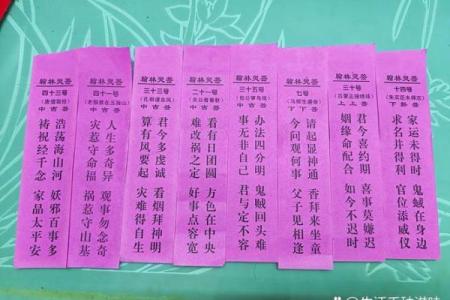 翰林灵签
四十三号
(唐僧取经)
中吉签
浩荡海山河 妖邪百事多
祈祝经千念 家品太平安
翰林灵签
四十一号
中吉签
人生多奇异 观事勿念奇
灾惹守命福 祸惹守山基
翰林灵签
三十三号
(孔明借东风)
中吉签
君今多虔诚 看烟拜神明
算有风要起 灾难得自生
翰林灵签
二十一号
(关公看春秋)
中吉签
看有日团圆 方色在中央
难改祸之定 好事点容宽
翰林灵签
三十五号
(包公审乌盆)
中吉签
办法四分明 鬼贼回头难
事无非自己 君与定不容
翰林灵签
七号
下下签
请起显神通 香拜来坐童
今问观何事 父子见相逢
翰林灵签
三十号
(吕蒙正接绣球)
上上签
君今喜约期 喜事莫嫌迟
姻缘命配合 如今不迟时
翰林灵签
十四号
(朱买臣未得志)
家运未得时 鬼蜮在身边
求名并得利 官位添威仪